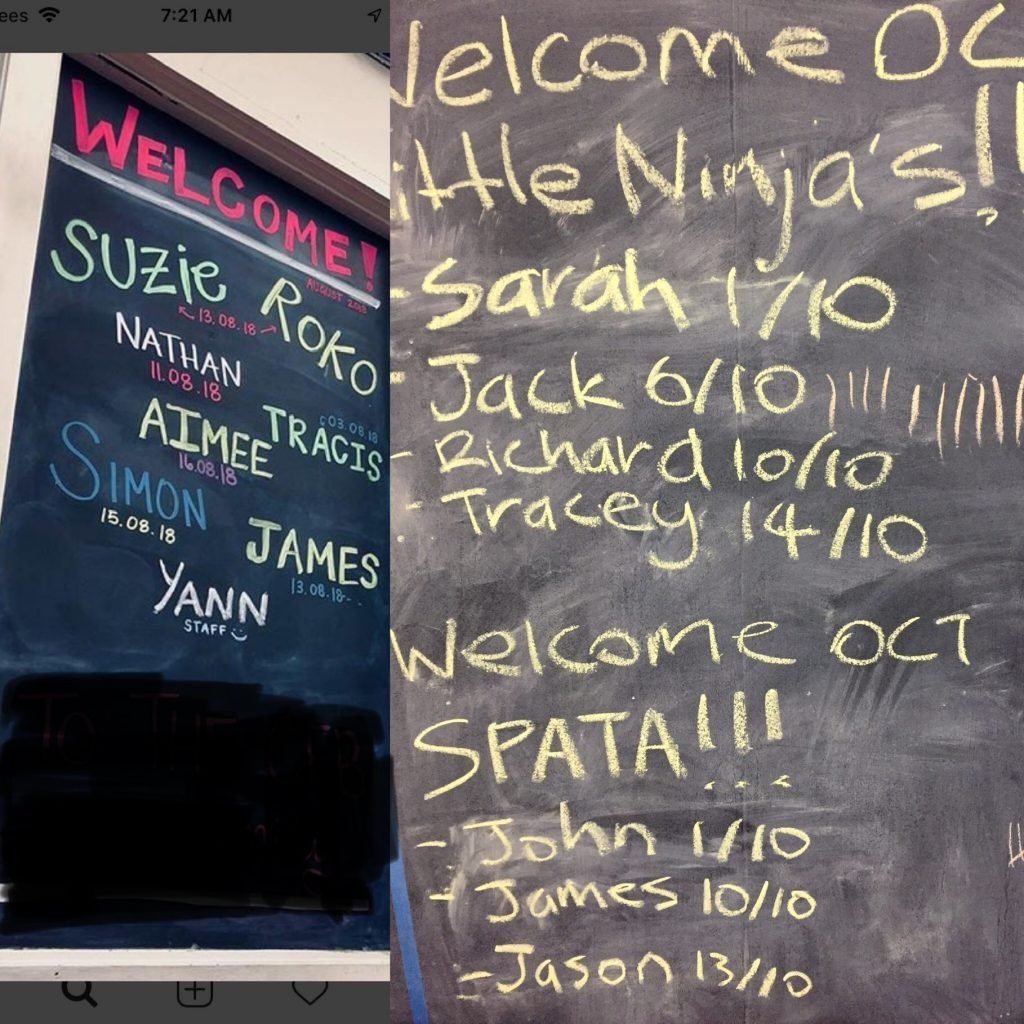 ees 7:21 AM
WELCOME!
AUGUST 2018
SUZIE ROKO
13.08.18
NATHAN
11.08.18
AIMEE
16.08.18
03.08.18
TRACIS
SIMON
15.08.18
JAMES
13.08.18
YANN
STAFF
Welcome OC
ittle Ninja's!!
- Sarah 1/10
- Jack 6/10
- Richard 10/10
- Tracey 14/10
Welcome OCT
SPATA!!!
- John 1/10
- James 10/10
- Jason 13/10